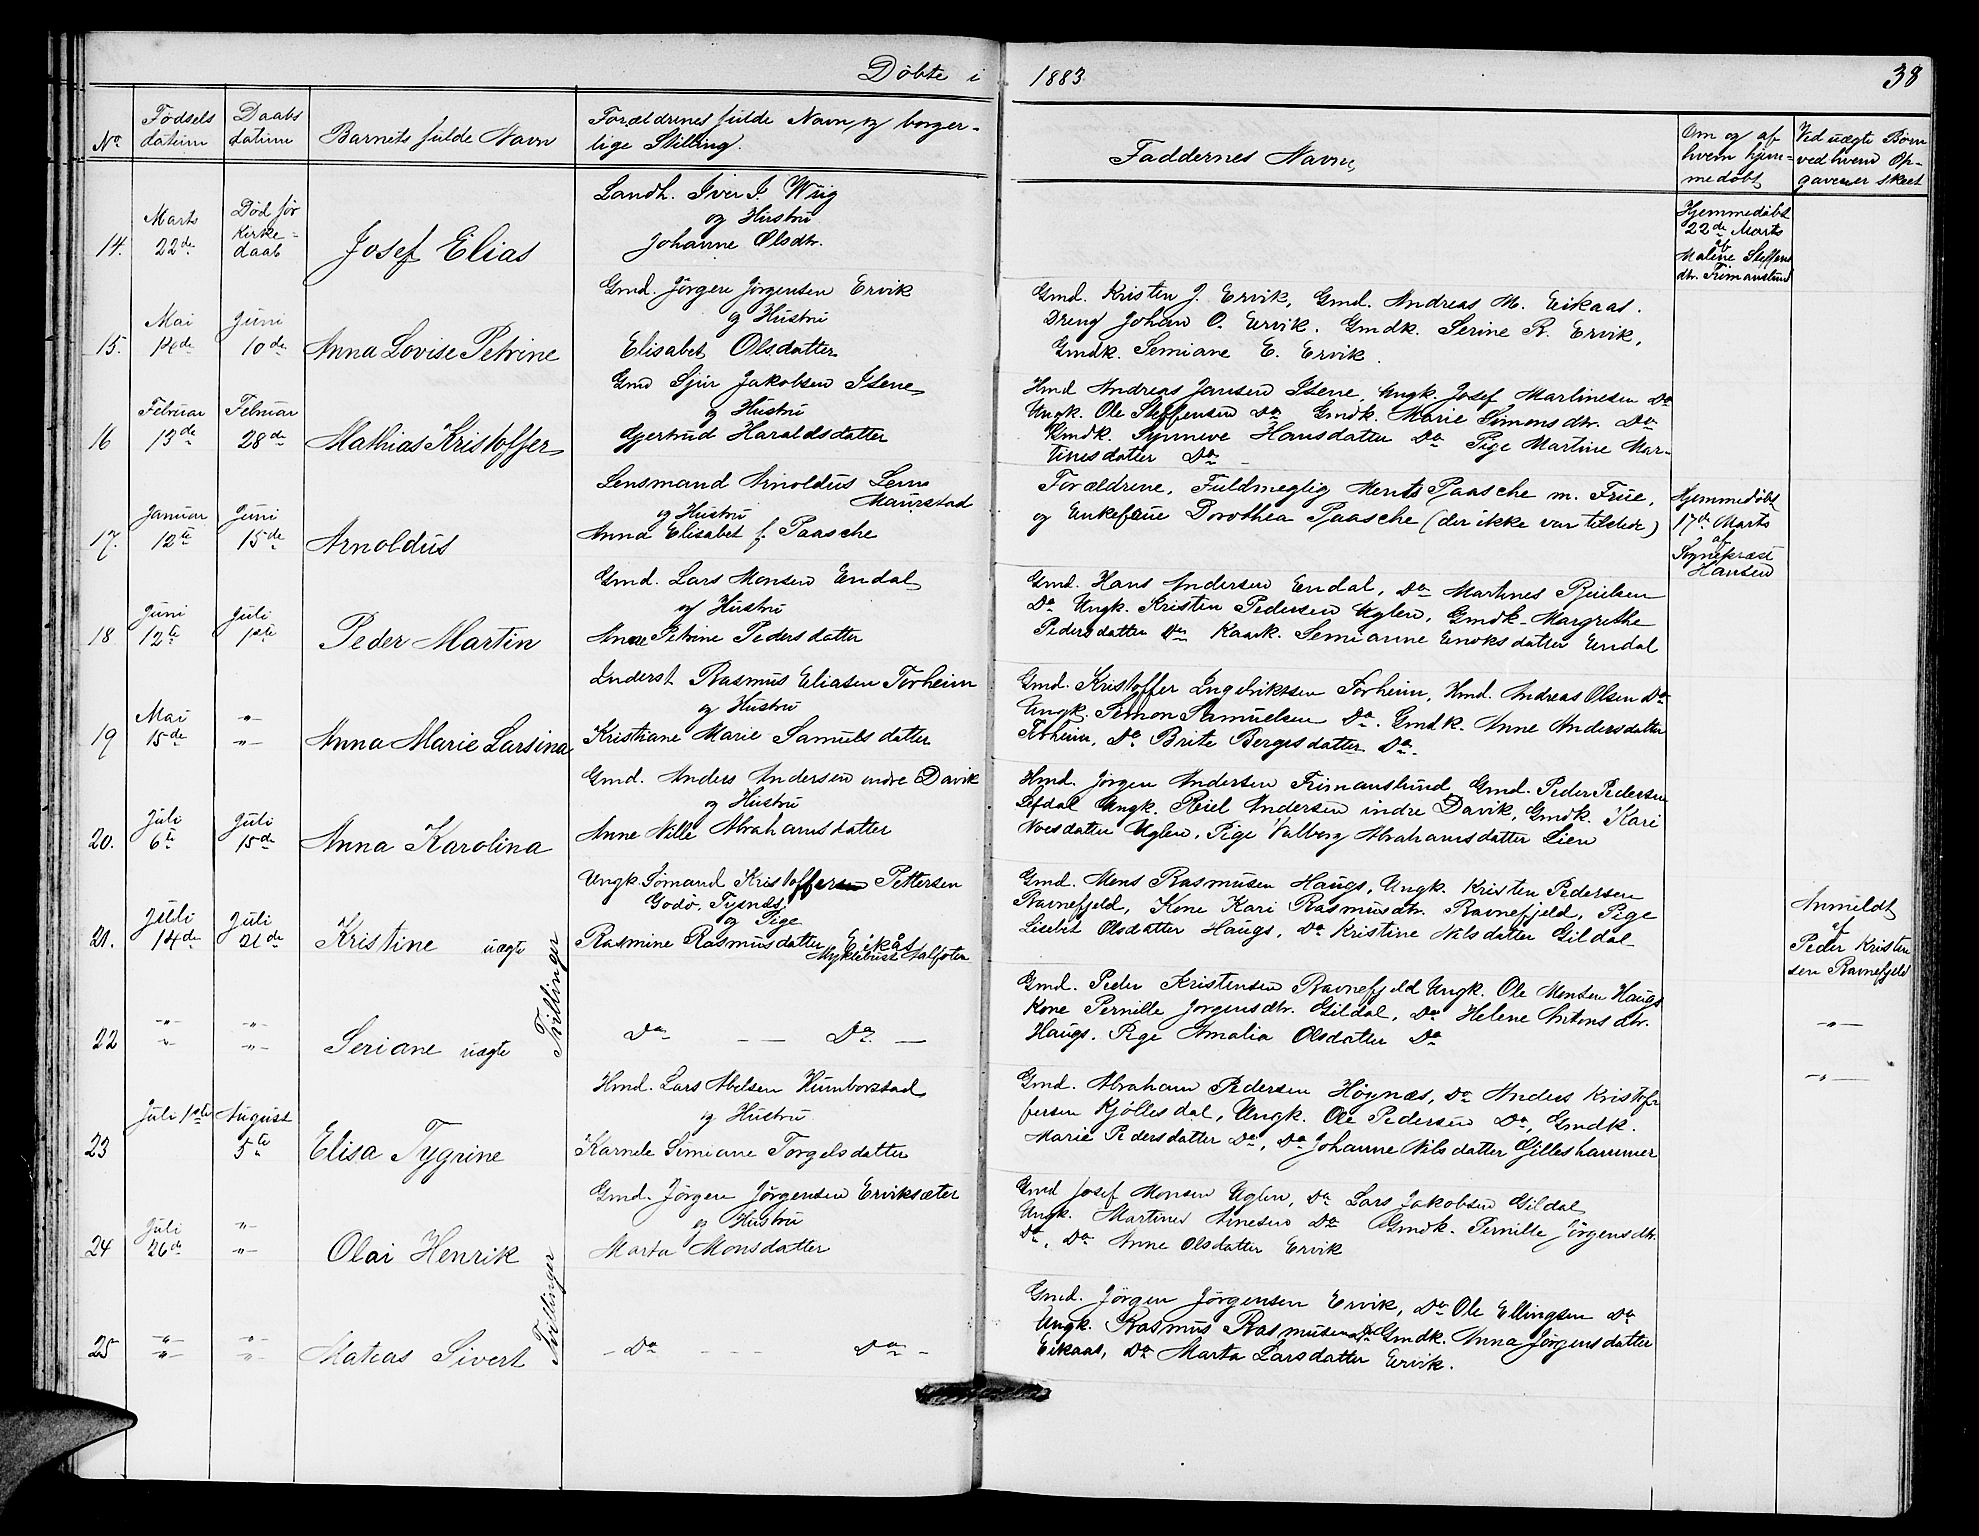 Döbte i 1883 38
No
Födsels
datum
Daabs
datum
Barnets fulde Navn
Forældrenes fulde Navn og borger-
lige Stilling.
Faddernes Navn
Om og af
hvem hjem-
medöbt
Ved uægte Börn
ved hvem Op-
gaven er skeet
14.
Marts
22de
Död för
Kirke-
daab
Josef Elias
Landh. Iver I. Wiig
og Hustru
Johanne Olsdtr.
Hjemmedöbt
22de Marts
af
Maline Steffens
dtr. Frimanslund
15.
Mai
Juni
10de
Anna Lovise Petrine
Gmd. Jörgen Jörgensen Ervik
og Hustru
Elisabet Olsdatter
Gmd. Kristen J. Ervik, Gmd. Andreas M. Eikaas.
Dreng Johan O. Ervik. Gmdk. Serine R. Ervik,
Gmdk. Semiane E. Ervik.
16
Februar
13de
Februar
28de
Mathias Kristoffer
Gmd Sjur Jakobsen Isene
og Hustru
Gjertrud Haraldsdatter
Hmd Andreas Jansen Isene, Ungk. Josef Martinesen Do
Ungk. Ole Steffensen Do Gmdk. Marie Simonsdtr. Do
Gmdk. Synneve Hansdatter Do Pige Martine Mar-
tinesdatter Do
17.
Januar
12te
Juni
15de
Arnoldus
Lensmand Arnoldus Lem
Maurstad
og Hustru
Anna Elisabet f. Paasche
Forældrene, Fuldmegtig Ments Paasche m. Frue,
og Enkefrue Dorothea Paasche (der ikke var tilstede)
Hjemmedöbt
17de Marts
af
Sognepræst
Hansen
18.
Juni
12te
Juli
1ste
Peder Martin
Gmd. Lars Monsen Endal
og Hustru
Anne Petrine Pedersdatter
Gmd. Hans Andersen Endal, Do Martines Reielsen
Do Ungk. Kristen Pedersen Uglen, Gmdk. Margrethe
Pedersdatter Do Kaark. Semianne Enoksdatter Endal
19
Mai
15de
-"-
-"-
Anna Marie Larsina
Inderst Rasmus Eliasen Torheim
og Hustru
Kristiane Marie Samuelsdatter
Gmd. Kristoffer Ingebriktsen Torheim, Hmd. Andreas Olsen Do
Ungk. Simon Samuelsen Do. Gmdk. Anne Andersdatter
Torheim, Do Brite Bergesdatter Do.
20.
Juli
6te
Juli
15de
Anna Karolina
Gmd. Anders Andersen indre Davik
og Hustru
Anne Nille Abrahamsdatter
Hmd. Jörgen Andersen Frimanslund, Gmd. Peder Pedersen
Lefdal Ungk. Reiel Andersen indre Davik, Gmdk. Kari
Noesdatter Uglen, Pige Valborg Abrahamsdatter Lien
21.
Juli
14de
Juli
21de
Kristine uægte
Tvillinger
Ungk. Sömand Kristoffersen Pettersen
Godö, Tysnæs
og Pige
Rasmine Rasmusdatter Eikås
Myklebust Aalfoten
Gmd. Mons Rasmusen Haugs, Ungk. Kristen Pedersen
Ravnefjeld, Kone Kari Rasmusdtr. Ravnefjeld, Pige
Lisebet Olsdatter Haugs, Do Kristine Nilsdatter Gildal
Anmeldt
af
Peder Kristen
sen Ravnefjeld
22
-"-
-"-
-"-
-"-
Seriane uægte
Do — — Do —
Gmd. Peder Kristensen Ravnefjeld Ungk. Ole Monsen Haugs
Kone Pernille Jörgensdtr. Gildal, Do Helene Antonsdtr.
Haugs. Pige Amalia Olsdatter Do
-"-
-"-
23
Juli 1ste
August
5te
Elisa Tygrine
Hmd. Lars Abelsen Humborstad
og Hustru
Karnele Simiane Torgelsdatter
Gmd. Abraham Pedersen Högnæs, Do Anders Kristof-
fersen Kjöllesdal, Ungk. Ole Pedersen Do, Gmdk.
Marie Pedersdatter Do, Do Johanne Nilsdatter Gilleshammer
24
Juli
26de
-"-
-"-
Olai Henrik
Tvillinger
Gmd. Jörgen Jörgensen Erviksæter
og Hustru
Marta Monsdatter
Gmd Josef Monsen Uglen, Do Lars Jakobsen Gildal
Ungk. Martines Arnesen Do Gmdk. Pernille Jörgensdtr.
Do, Do Anne Olsdatter Ervik
25
-"-
-"-
-"-
-"-
Mateas Sivert
- Do - - - Do -
Gmd. Jörgen Jörgensen Ervik, Do Ole Ellingsen Do
Ungk. Rasmus Rasmusen Do Gmdk. Anna Jörgensdatter
Eikaas, Do Marta Larsdatter Ervik.